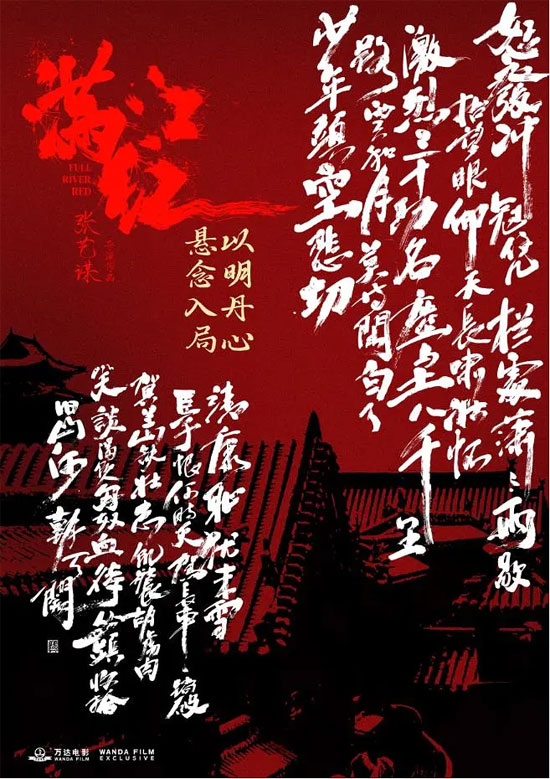 满江红
FULL
RIVER
RED
张艺谋
以明丹心
悬念入局
怒發冲冠凭栏处潇潇雨歇
抬望眼仰天長啸壮怀
激烈三十功名塵土八千里
路雲和月莫等閒白了
少年頭空悲切
靖康恥犹未雪
臣子恨何時灭驾長車踏破
賀兰山缺壮志饥餐胡虏肉
笑談渴饮匈奴血待從頭收拾
旧山河朝天闕
万达电影
WANDA FILM
WANDA FILM
EXCLUSIVE